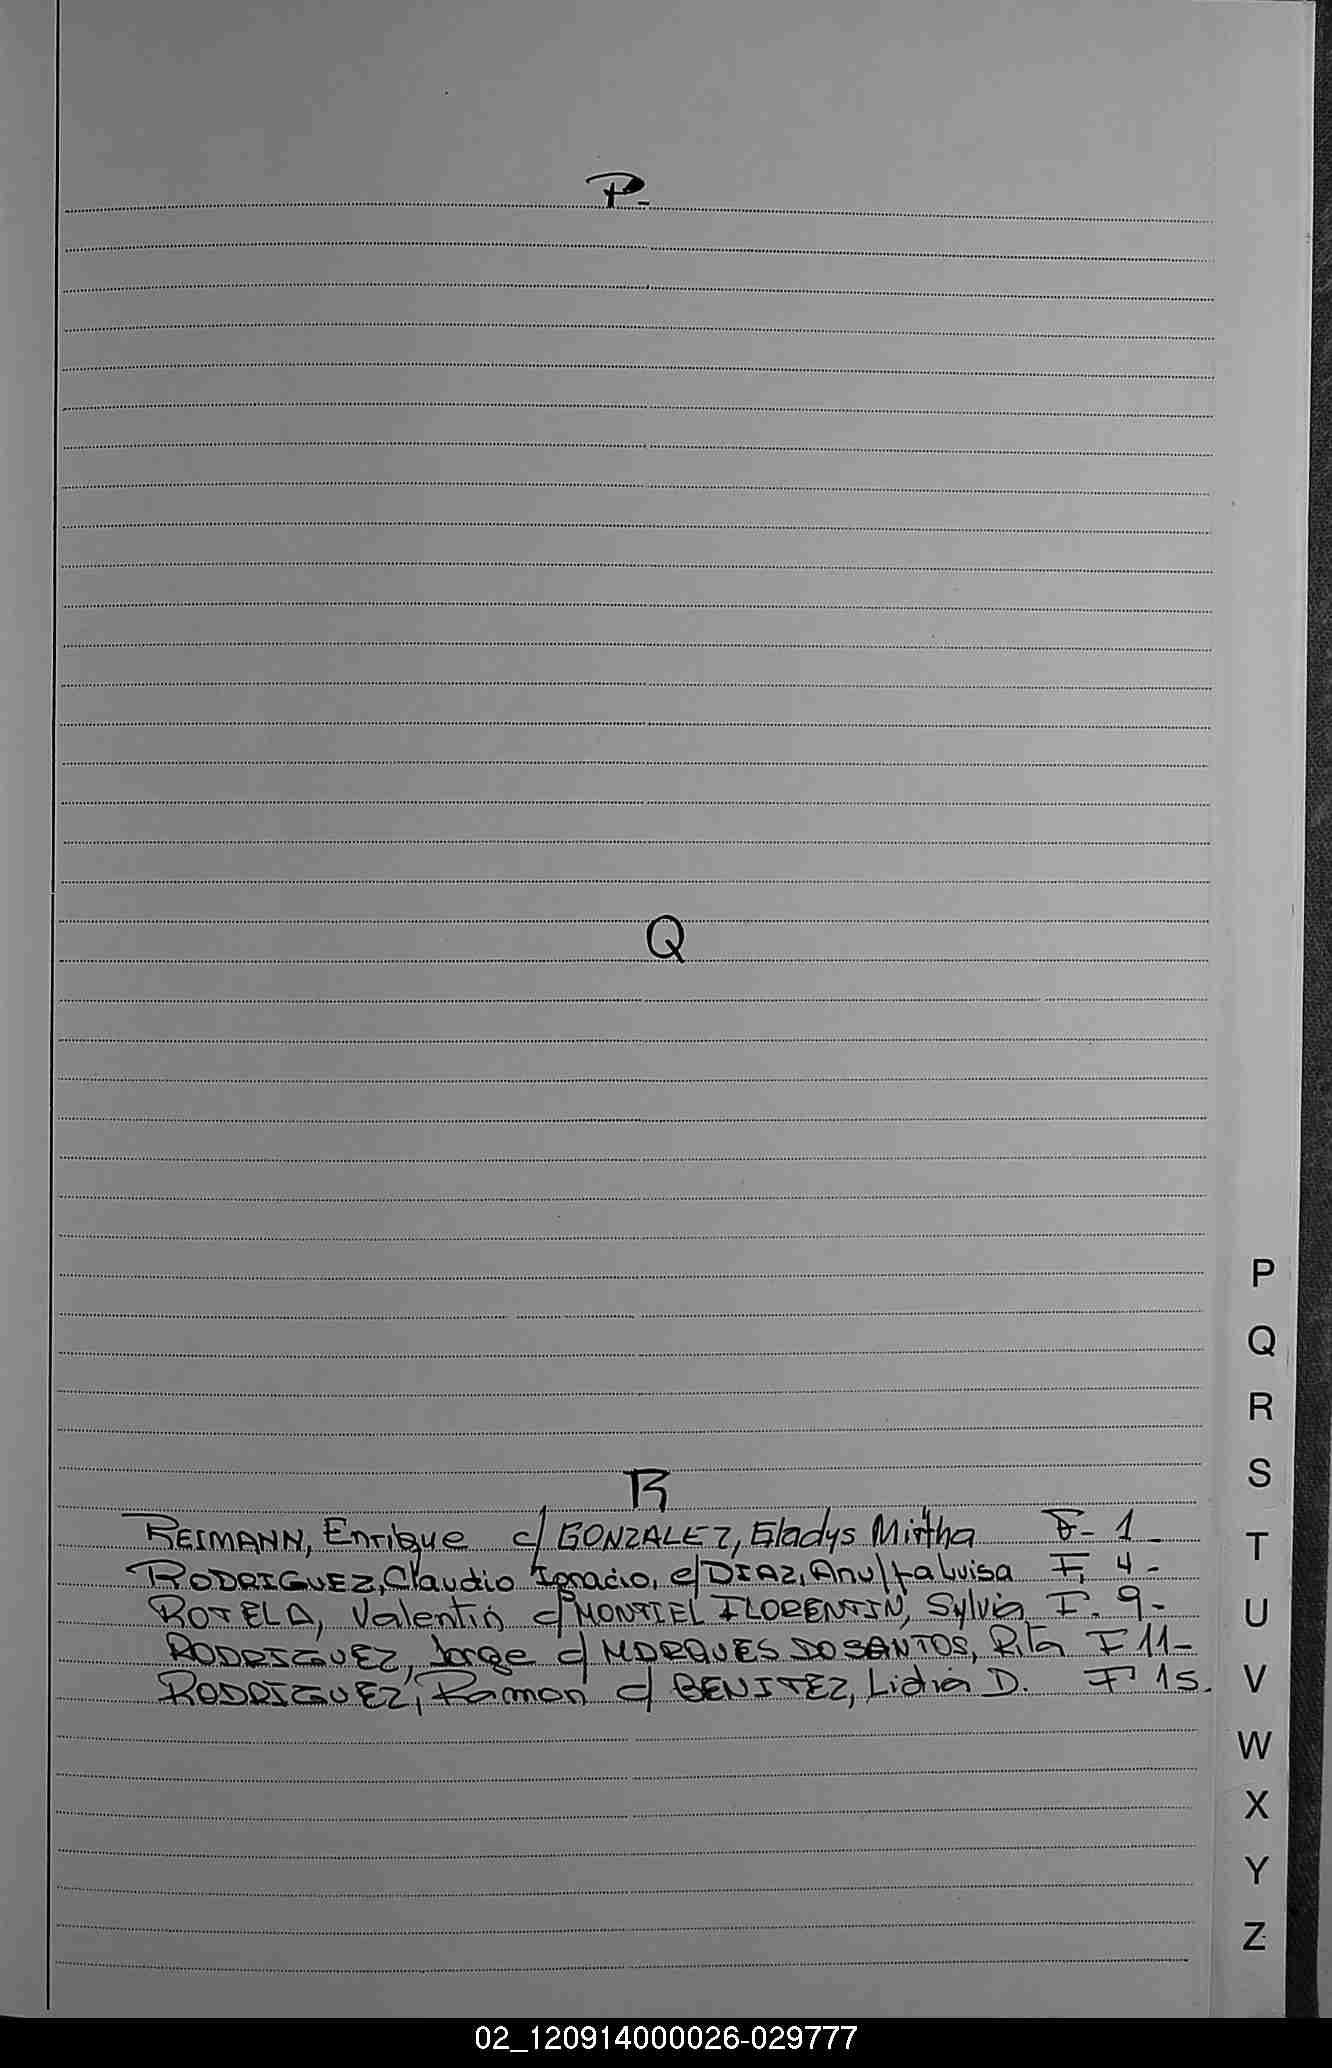 P-
Q
R
REIMANN, Enrique c/ GONZALEZ, Gladys Mirtha F- 1-
RODRIGUEZ, Claudio Ignacio, c/ DIAZ, Luisa F, 4-
ROTELA, Valentin c/ MONTIEL FLORENTIN, Sylvia F. 9-
RODRIGUEZ, Jorge c/ MARQUES DO SANTOS, Rita F 11-
RODRIGUEZ, Ramon c/ BENITEZ, Lidia D. F 15.
P
Q
R
S
T
U
V
W
X
Y
Z
02_120914000026-029777